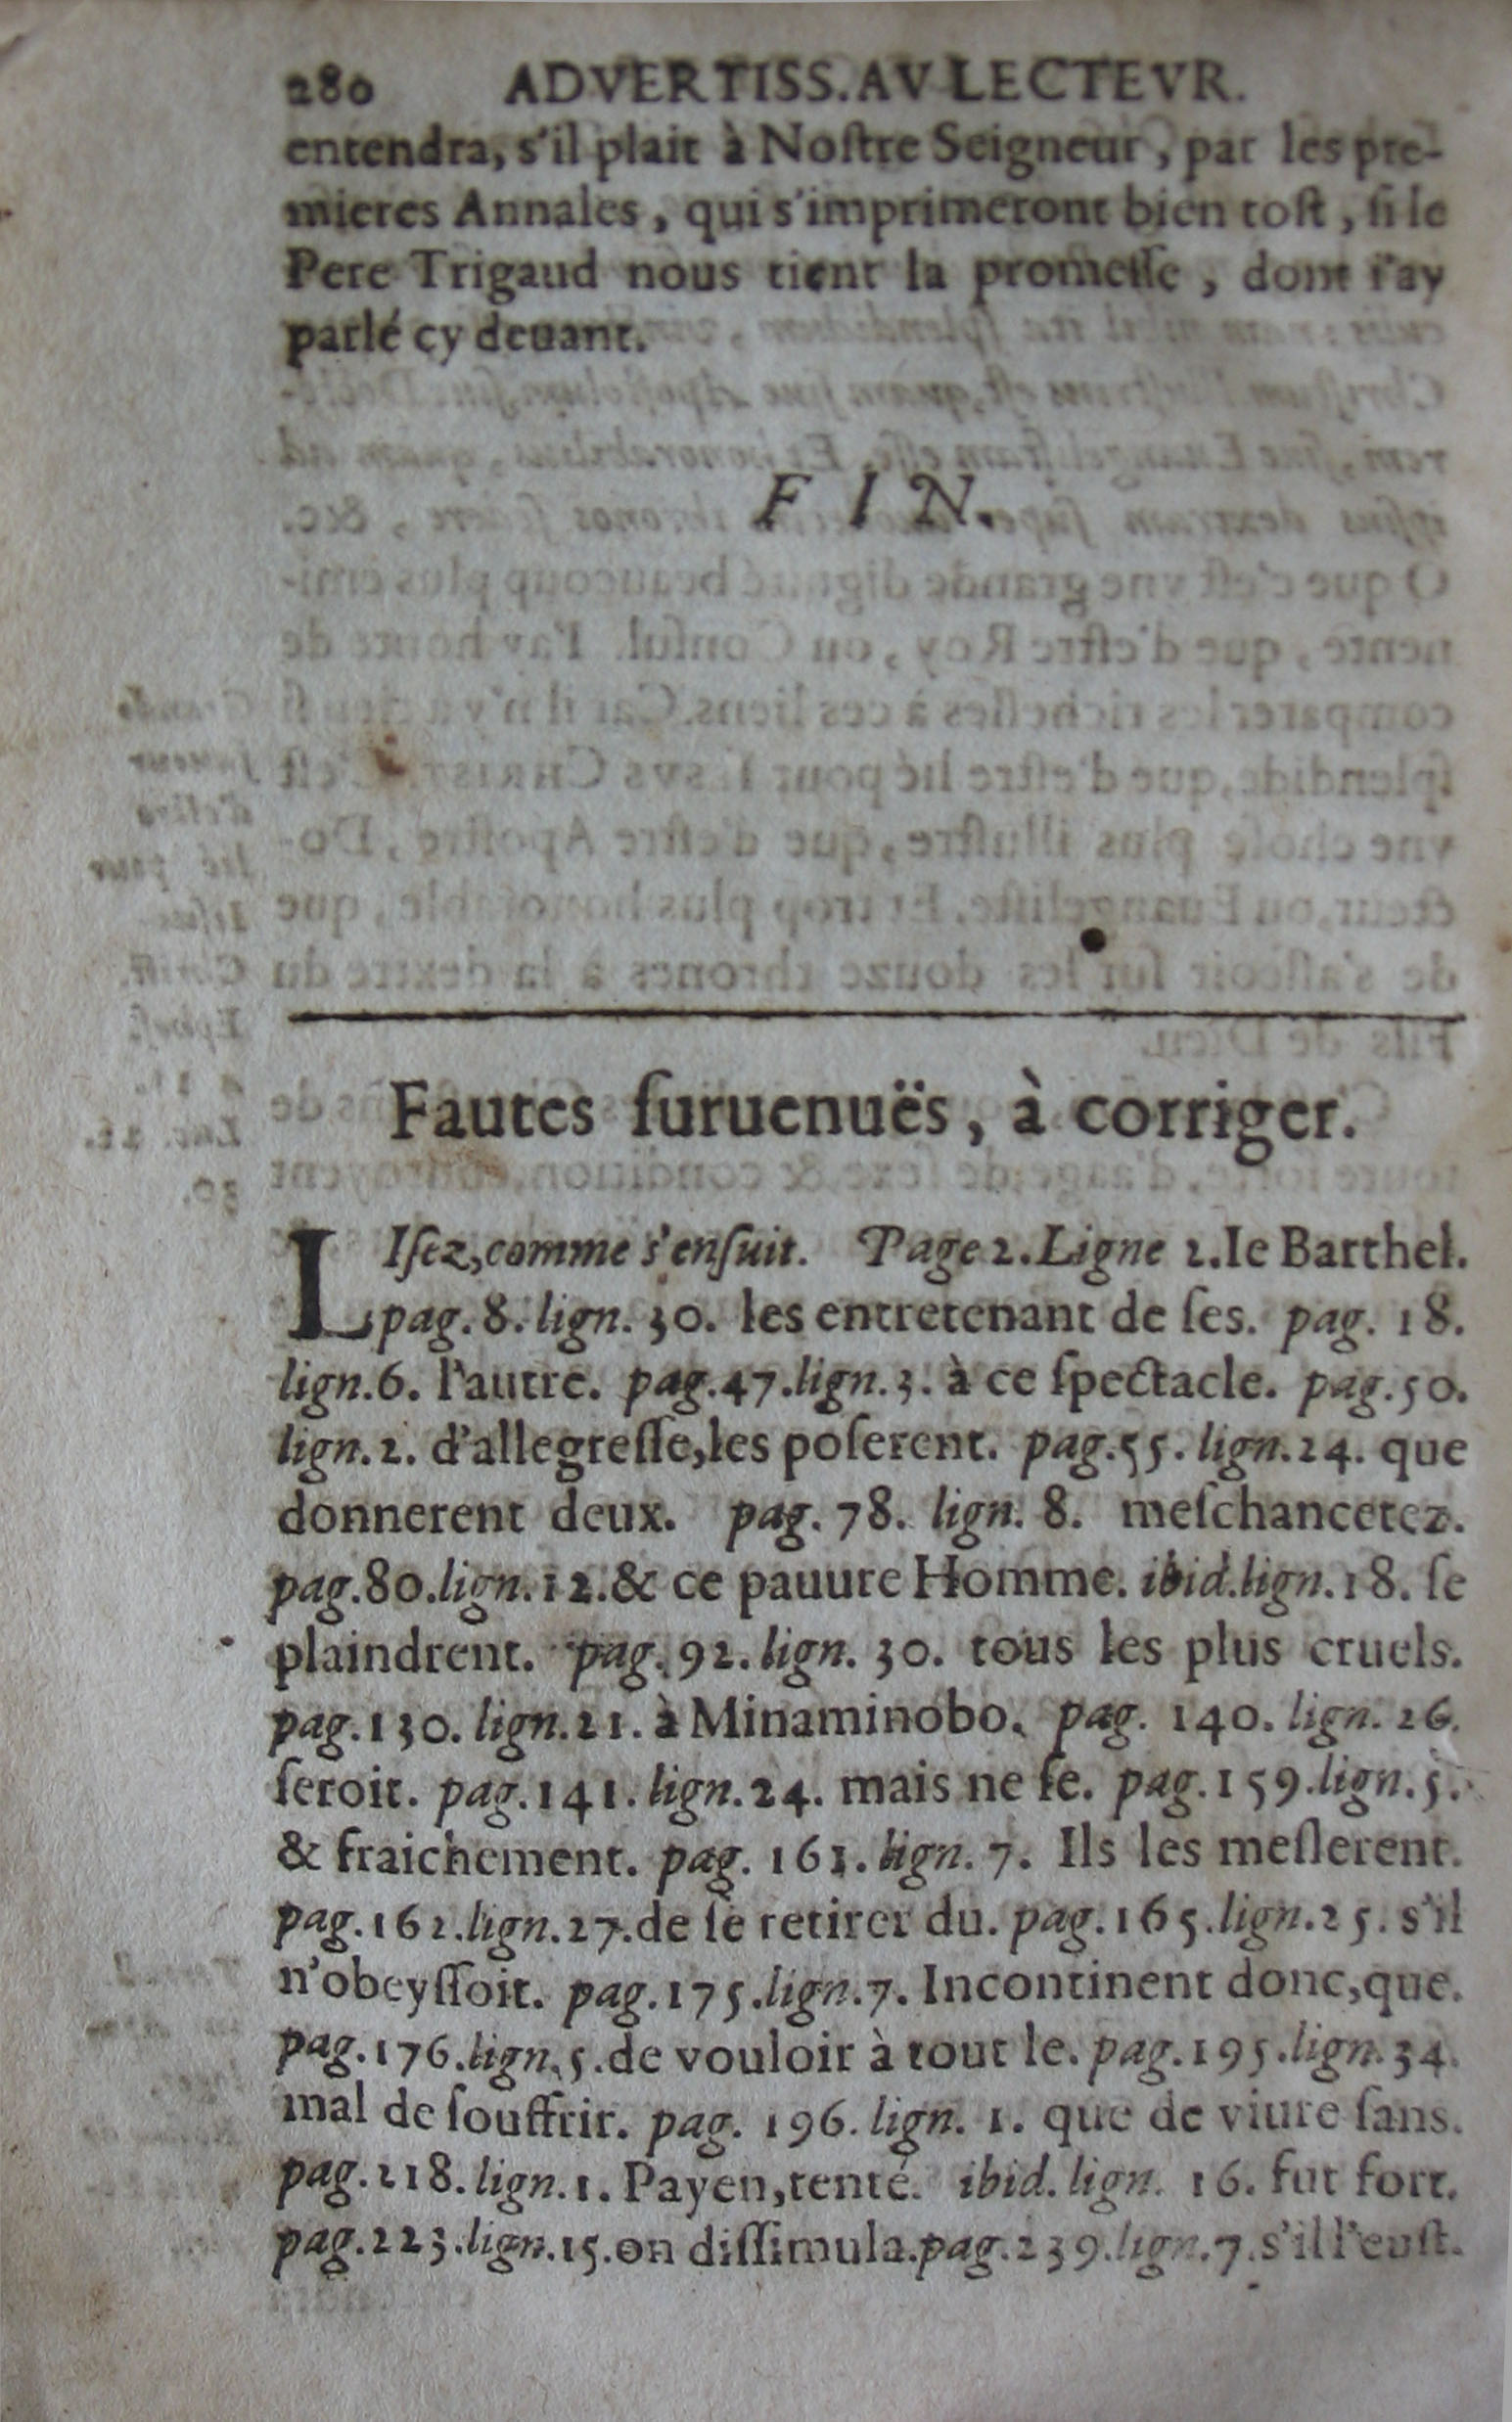 280 ADVERTISS. AV LECTEVR.
entendra, s'il plait à Noſtre Seigneur, par les pre-
mieres Annales, qui s'imprimeront bien toſt, ſi le
Pere Trigaud nous tient la promeſſe, dont i'ay
parlé cy deuant.
FIN.
Fautes ſuruenuës, à corriger.
LIſez, comme s'enſuit. Page 2. Ligne 2. Ie Barthel.
pag. 8. lign. 30. les entretenant de ſes. pag. 18.
lign. 6. l'autre. pag. 47. lign. 3. à ce ſpectacle. pag. 50.
lign. 2. d'allegreſſe, les poſerent. pag. 55. lign. 24. que
donnerent deux. pag. 78. lign. 8. meſchancetez.
pag. 80. lign. 12. & ce pauure Homme. ibid. lign. 18. ſe
plaindrent. pag. 92. lign. 30. tous les plus cruels.
pag. 130. lign. 21. à Minaminobo. pag. 140. lign. 26.
ſeroit. pag. 141. lign. 24. mais ne ſe. pag. 159. lign. 5.
& fraichement. pag. 161. lign. 7. Ils les meſlerent.
pag. 162. lign. 27. de ſe retirer du. pag. 165. lign. 25. s'il
n'obeyſſoit. pag. 175. lign. 7. Incontinent donc, que.
pag. 176. lign. 5. de vouloir à tout le. pag. 195. lign. 34.
mal de ſouffrir. pag. 196. lign. 1. que de viure ſans.
pag. 218. lign. 1. Payen, tenté. ibid. lign. 16. fut fort.
pag. 223. lign. 15. on diſſimula. pag. 239. lign. 7. s'il l'euſt.